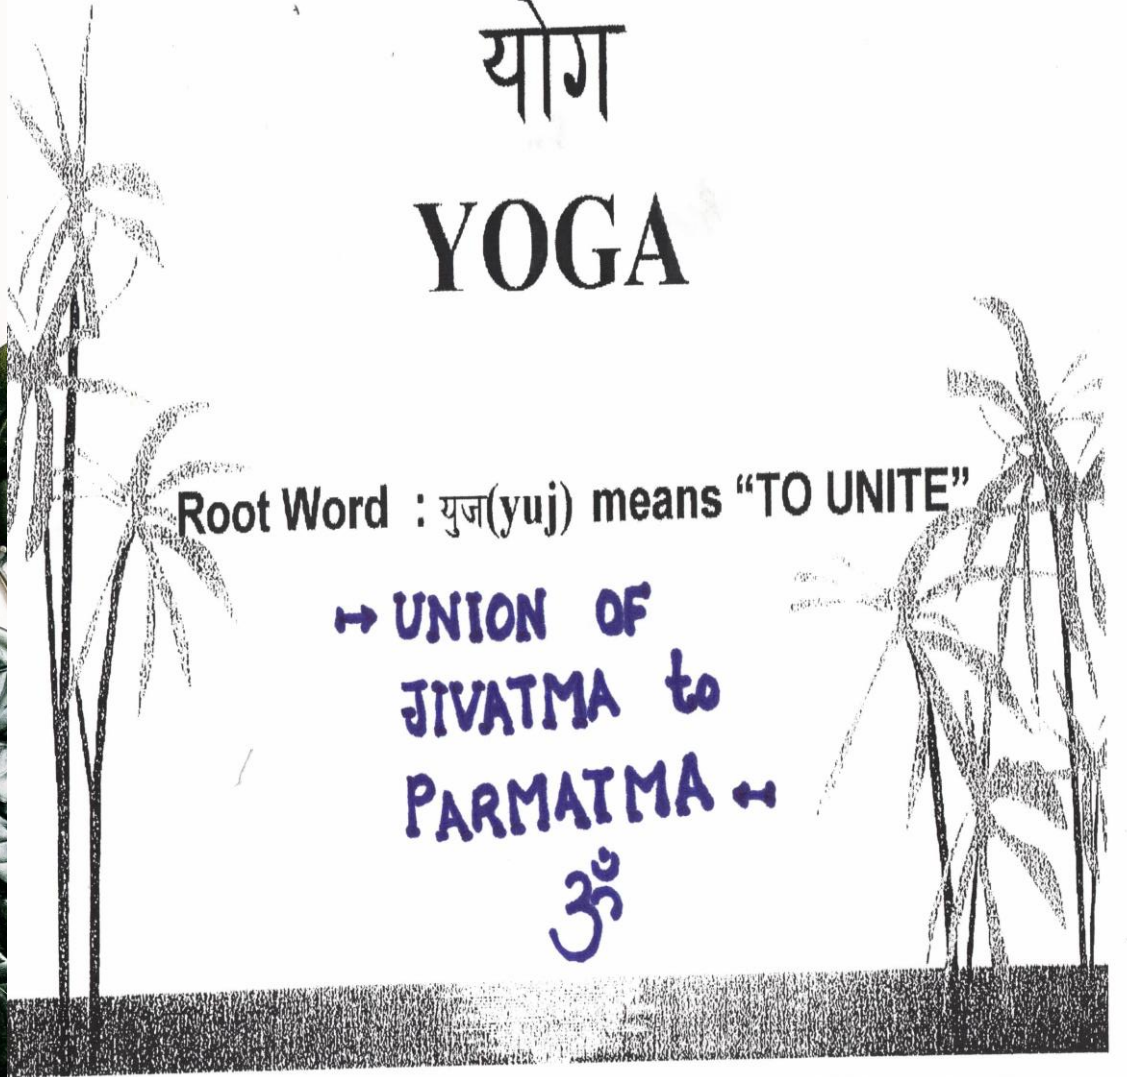 योग
YOGA
Root Word : युज(yuj) means “TO UNITE”
↦ UNION OF
JIVATMA to
PARMATMA ↤
ॐ